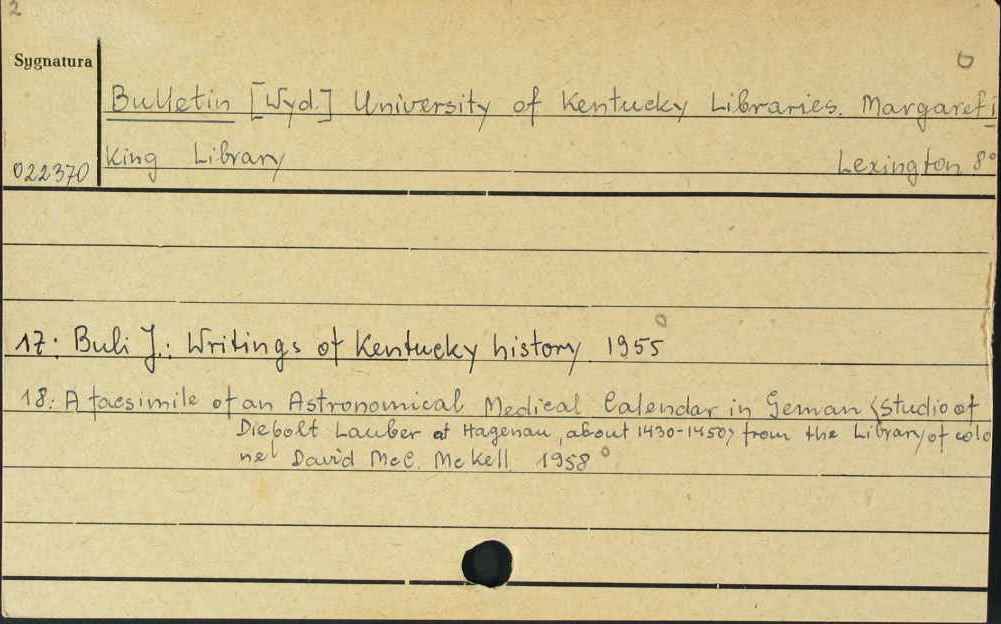 2
Sygnatura
Bulletin [Wyd.] University of Kentucky Libraries. Margaret i
King Library Lexington 8°
022370
17: Buli J.: Writings of Kentucky history 1955
18: A facsimile of an Astronomical Medical Calendar in Geman <Studio of
Diebolt Lauber at Hagenau, about 1430-1450> from the Library of colo
nel David McC. McKell 1958